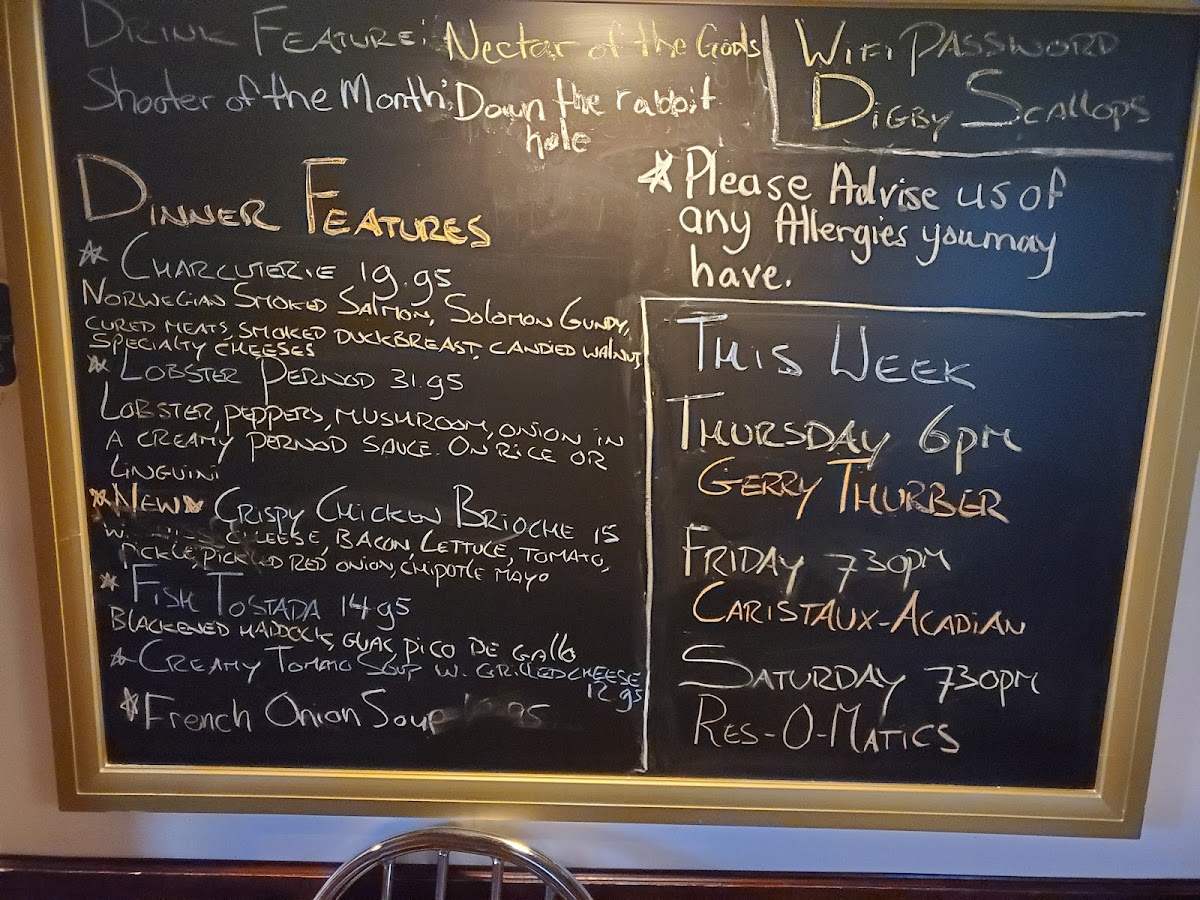 Drink Feature: Nectar of the Gods
Shooter of the Month: Down the rabbit
hole
WiFi Password
Digby Scallops
*Please Advise us of
any Allergies you may
have.
Dinner Features
* Charcuterie 19.95
Norwegian Smoked Salmon, Solomon Gundy,
cured meats, smoked duckbreast, candied walnut,
specialty cheeses
* Lobster Pernod 31.95
Lobster, peppers, mushroom, onion in
a creamy pernod sauce. On rice or
linguini
*New* Crispy Chicken Brioche 15
cheese, bacon, lettuce, tomato,
pickle, pickled red onion, chipotle mayo
* Fish Tostada 14.95
Blackened haddock, guac, pico de gallo
* Creamy Tomato Soup w. grilled cheese
12.95
*French Onion Soup
This Week
Thursday 6pm
Gerry Thurber
Friday 730pm
Caristaux-Acadian
Saturday 730pm
Res-O-Matics